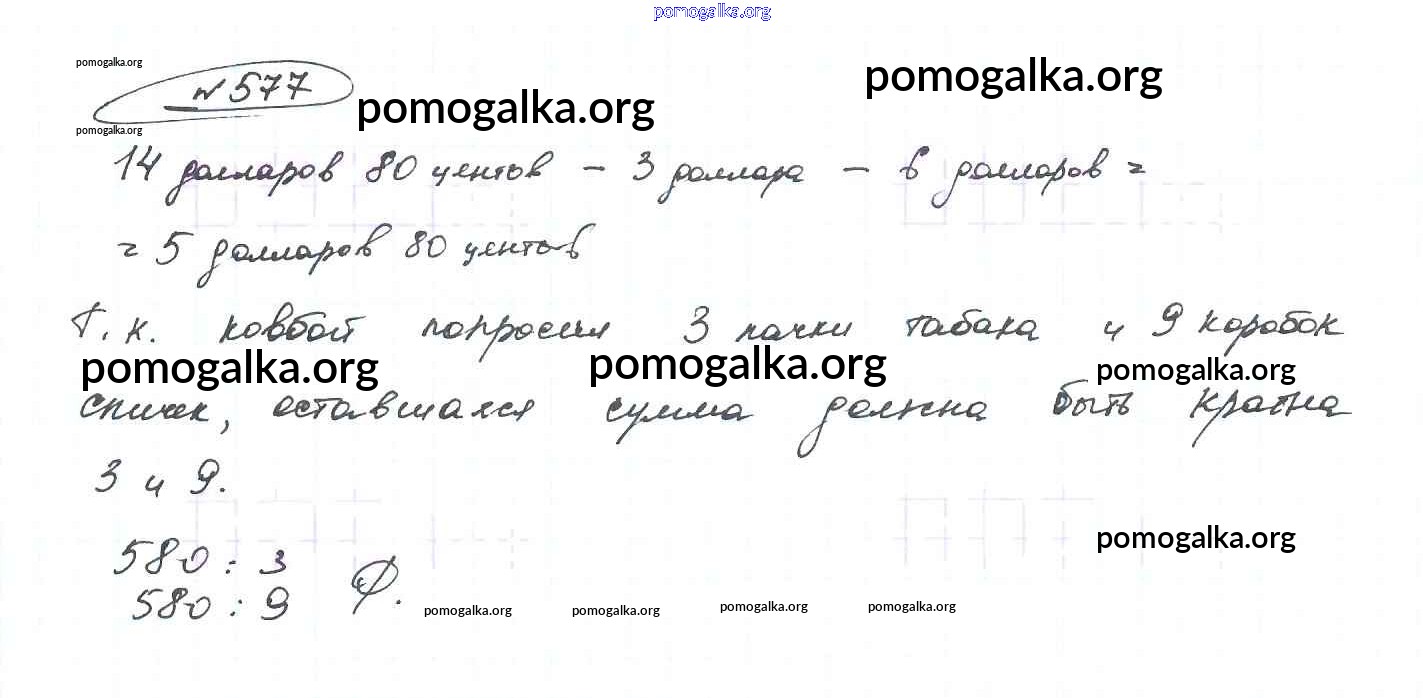 pomogalka.org
pomogalka.org
№ 577
pomogalka.org
pomogalka.org
pomogalka.org
14 долларов 80 центов – 3 доллара – 6 долларов =
= 5 долларов 80 центов
Т.к. ковбой попросил 3 пачки табака и 9 коробок
pomogalka.org pomogalka.org pomogalka.org
спичек, оставшаяся сумма должна быть кратна
3 и 9.
pomogalka.org
580 : 3
580 : 9
pomogalka.org pomogalka.org pomogalka.org pomogalka.org